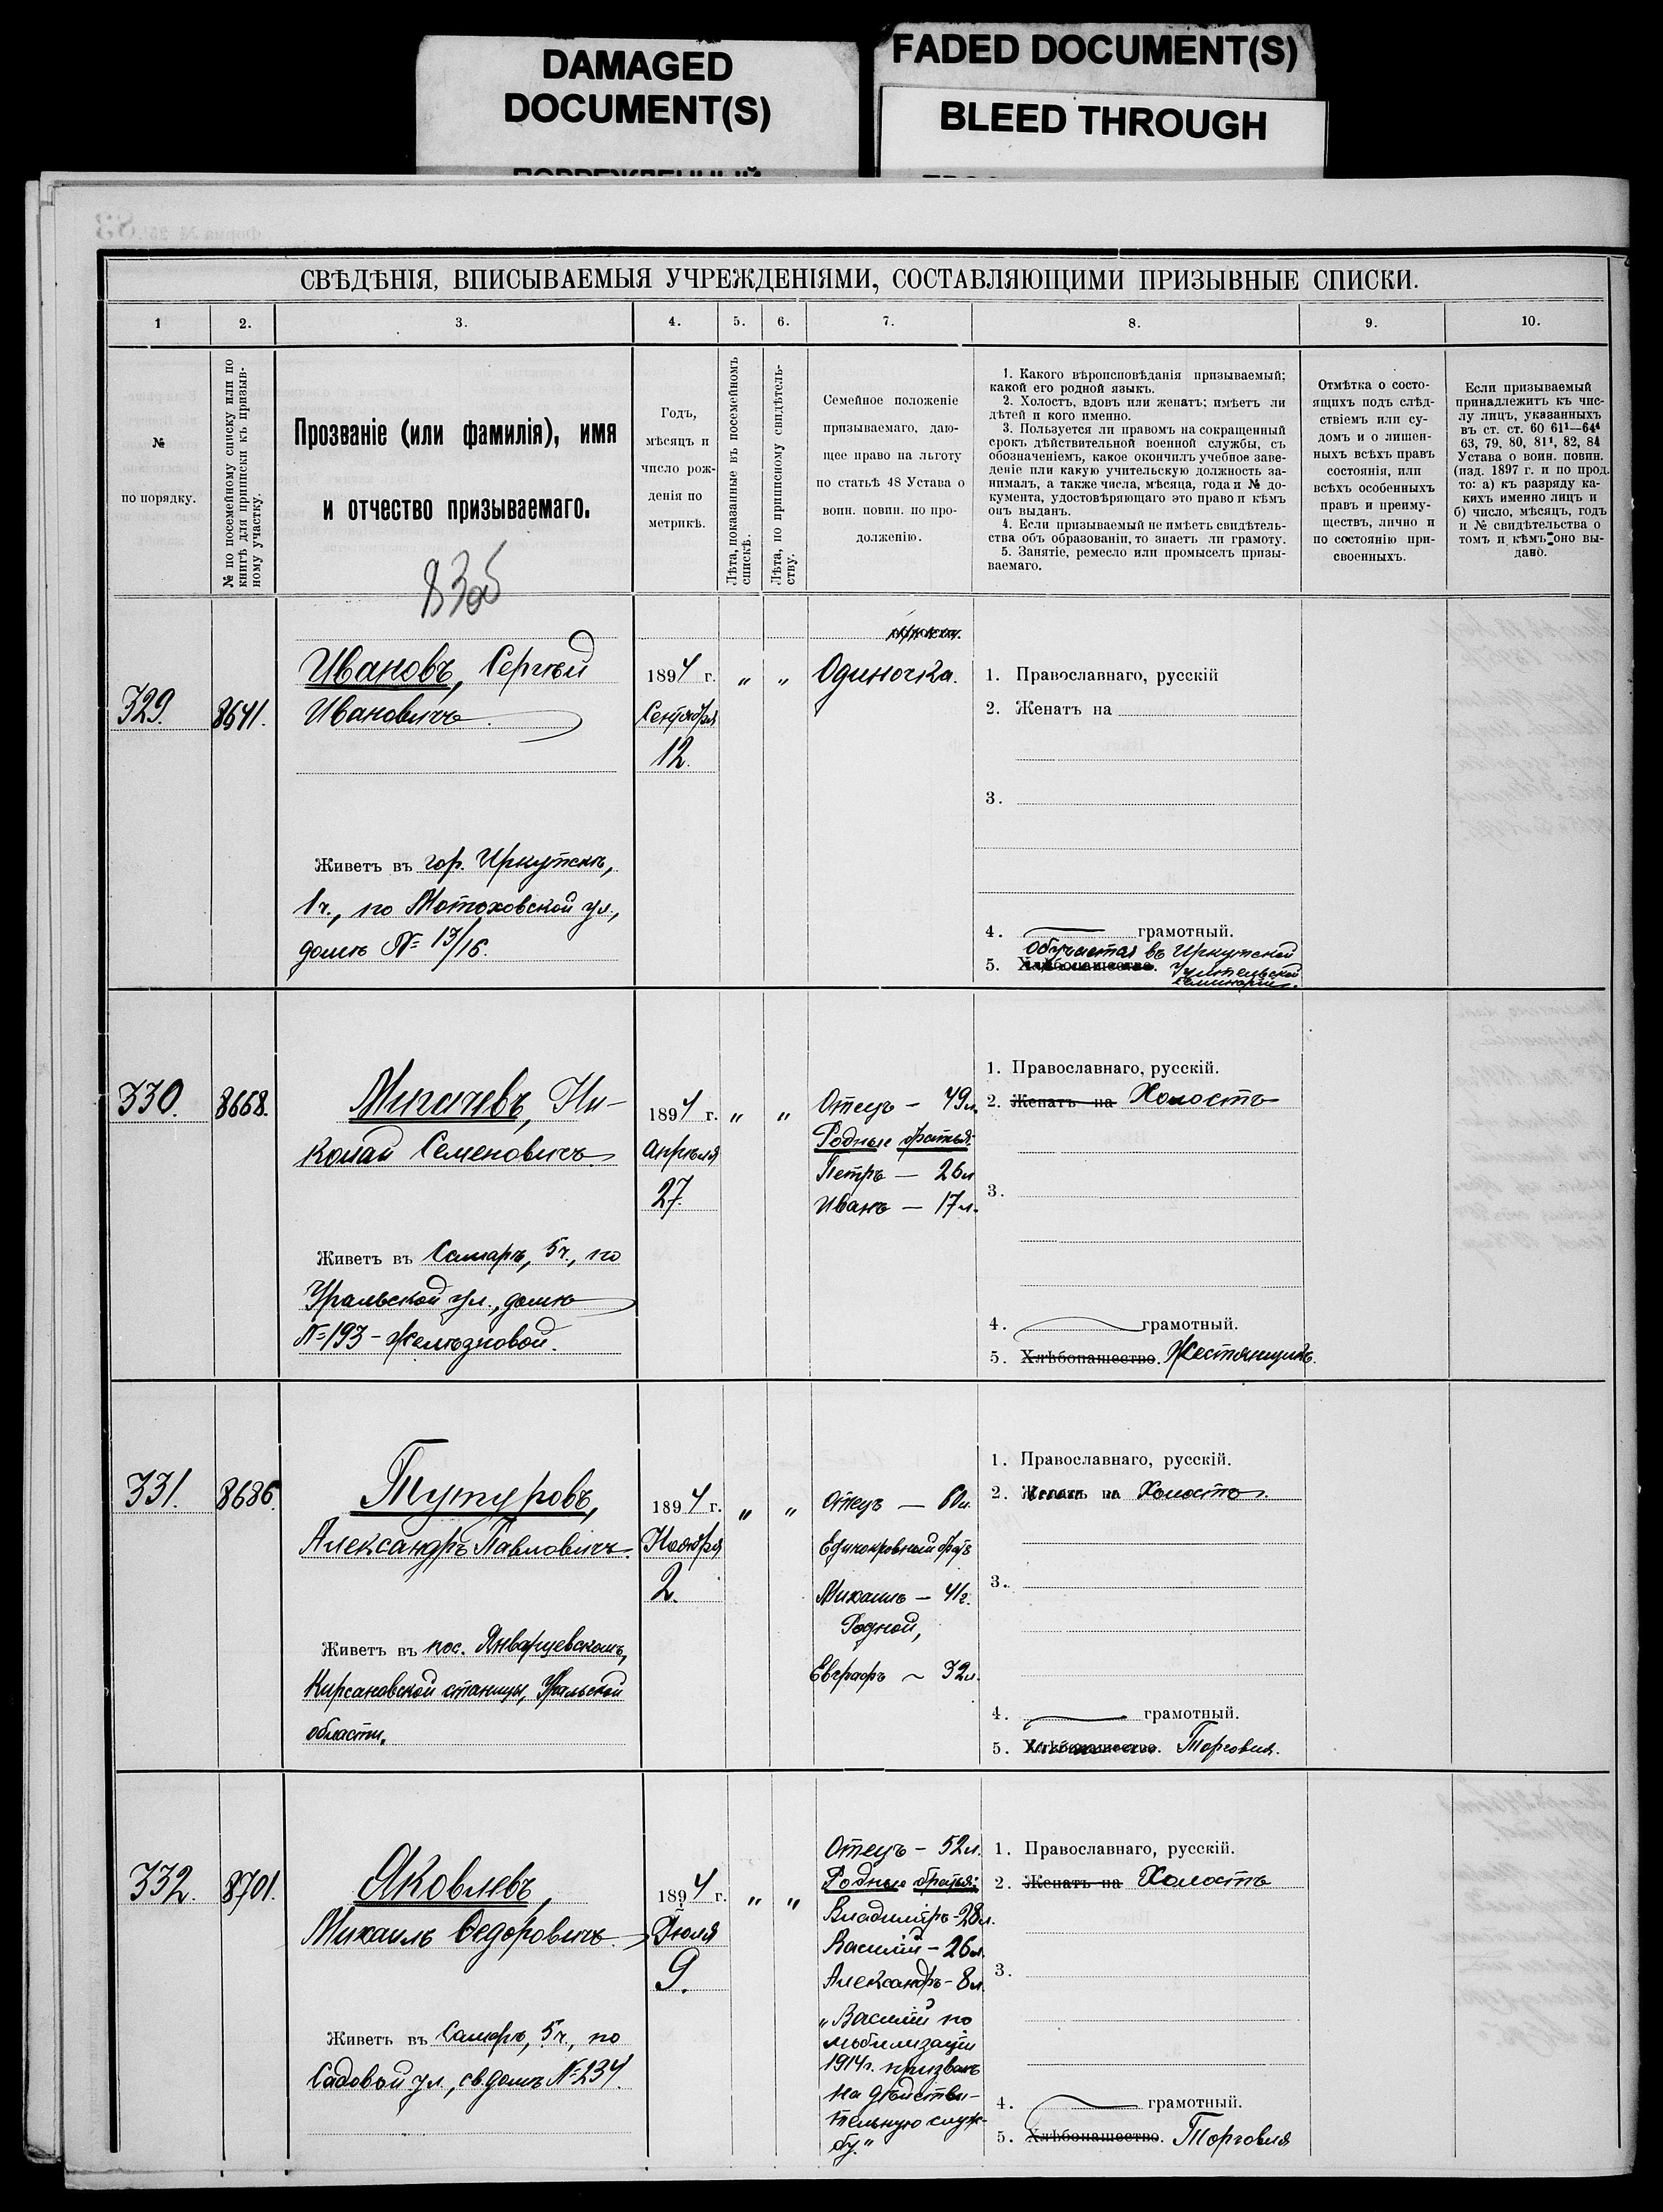 DAMAGED
DOCUMENT(S)
FADED DOCUMENT(S)
BLEED THROUGH
СВѢДѢНІЯ, ВПИСЫВАЕМЫЯ УЧРЕЖДЕНІЯМИ, СОСТАВЛЯЮЩИМИ ПРИЗЫВНЫЕ СПИСКИ.
1
2.
3.
4.
5.
6.
7.
8.
9.
10.
№
по порядку.
№ по посемейному списку или по
книгѣ для приписки къ призыв-
ному участку.
Прозваніе (или фамилія), имя
и отчество призываемаго.
Годъ,
мѣсяцъ и
число рож-
денія по
метрикѣ.
Лѣта, показанные въ посемейномъ
спискѣ.
Лѣта, по приписному свидѣтель-
ству.
Семейное положеніе
призываемаго, даю-
щее право на льготу
по статьѣ 48 Устава о
воин. повин. по про-
долженію.
1. Какого вѣроисповѣданія призываемый;
какой его родной языкъ.
2. Холостъ, вдовъ или женатъ; имѣетъ ли
дѣтей и кого именно.
3. Пользуется ли правомъ на сокращенный
срокъ дѣйствительной военной службы, съ
обозначеніемъ, какое окончилъ учебное заве-
деніе или какую учительскую должность за-
нималъ, а также числа, мѣсяца, года и № до-
кумента, удостовѣряющаго это право и кѣмъ
онъ выданъ.
4. Если призываемый не имѣетъ свидѣтель-
ства объ образованіи, то знаетъ ли грамоту.
5. Занятіе, ремесло или промыселъ призы-
ваемаго.
Отмѣтка о состо-
ящихъ подъ слѣд-
ствіемъ или су-
домъ и о лишен-
ныхъ всѣхъ правъ
состоянія, или
всѣхъ особенныхъ
правъ и преиму-
ществъ, лично и
по состоянію при-
своенныхъ.
Если призываемый
принадлежитъ къ чис-
лу лицъ, указанныхъ
въ ст. ст. 60 61¹—64⁴
63, 79, 80, 81¹, 82, 84
Устава о воин. повин.
(изд. 1897 г. и по прод.
то: а) къ разряду ка-
кихъ именно лицъ и
б) число, мѣсяцъ, годъ
и № свидѣтельства о
томъ и кѣмъ оно вы-
дано.
83об
329.
8641.
Ивановъ, Сергѣй
Ивановичъ
Живетъ въ гор. Иркутскѣ,
1ч., по Мотоховской ул.,
домъ № 13/16.
1894 г.
Сентября
12.
„
„
Одиночка.
1. Православнаго, русскій
2. Женатъ на
3.
4. грамотный.
Обучается въ Иркутской
5. Хлѣбопашество. Учительской
семинаріи.
330.
8668.
Мигачевъ, Ни-
колай Семеновичъ
Живетъ въ Самарѣ, 5ч., по
Уральской ул., домъ
№ 193 - Желѣзновой.
1894 г.
Апрѣля
27.
„
„
Отецъ — 49л.
Родные братья:
Петръ — 26л
Иванъ — 17л.
1. Православнаго, русскій.
2. Женатъ на Холостъ
3.
4. грамотный.
5. Хлѣбопашество. Жестянщикъ.
331.
8686.
Тутуровъ,
Александръ Павловичъ.
Живетъ въ пос. Январцевскомъ,
Кирсановской станицы, Уральской
области.
1894 г.
Ноября
2.
„
„
Отецъ — 60л.
Единокровный братъ
Михаилъ — 41г.
Родной,
Евграфъ — 32л.
1. Православнаго, русскій.
2. Женатъ на Холостъ.
3.
4. грамотный.
5. Хлѣбопашество. Торговля.
332.
8701.
Яковлевъ,
Михаилъ Ѳедоровичъ.
Живетъ въ Самарѣ, 5ч., по
Садовой ул., св. домъ № 234.
1894 г.
Іюля
9.
„
„
Отецъ — 52л.
Родные братья:
Владиміръ - 28л.
Василій - 26л.
Александръ - 8л.
„Василій по
мобилизаціи
1914г. призванъ
на дѣйстви-
тельную служ-
бу."
1. Православнаго, русскій.
2. Женатъ на Холостъ
3.
4. грамотный.
5. Хлѣбопашество. Торговля